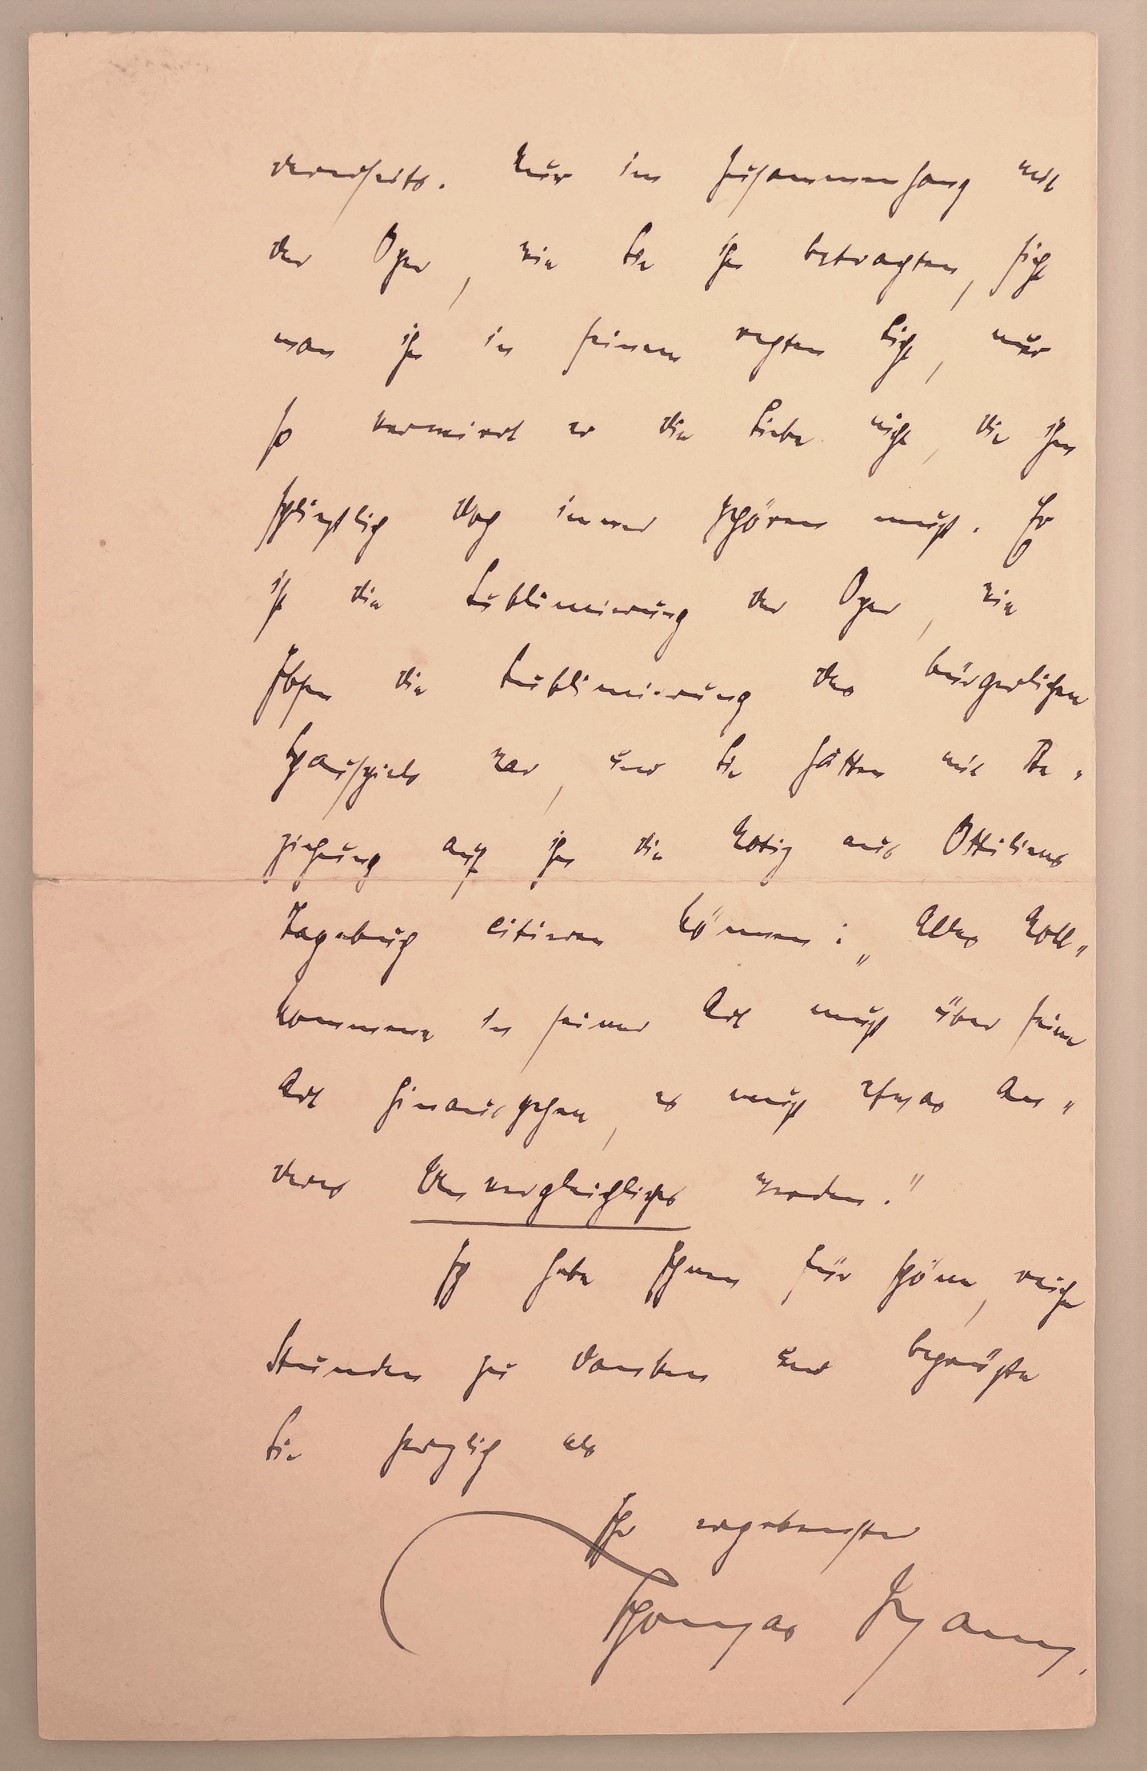 dererseits. Nur im Zusammenhang mit
der Oper, wie Sie ihn betrachten, sieht
man ihn in seinem rechten Licht, nur
so verwirrt er die Liebe nicht, die ihm
schließlich doch immer gehören muß. Er
ist die Sublimierung der Oper, wie
Ibsen die Sublimierung des bürgerlichen
Schauspiels war, und Sie hätten mit Be-
ziehung auf ihn die Notiz aus Ottiliens
Tagebuch citieren können: „Alles Voll-
kommene in seiner Art muß über seine
Art hinausgehen, es muß etwas An-
deres Unvergleichliches werden."
Ich habe Ihnen für schöne, reiche
Stunden zu danken und begrüße
Sie herzlich als
Ihr ergebenster
Thomas Mann.